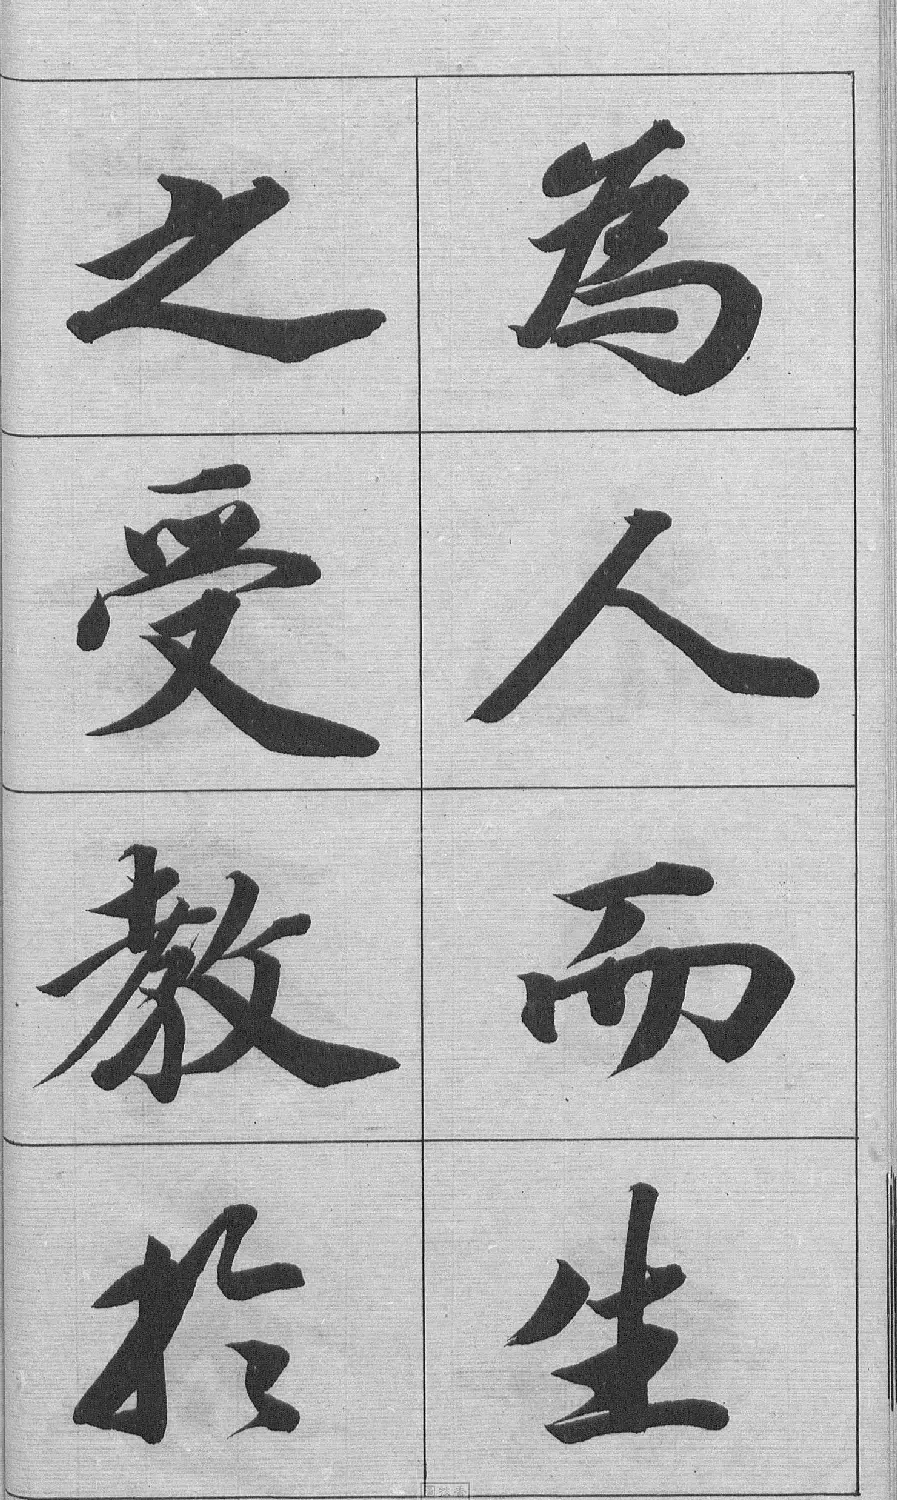 為人而生
之受教於